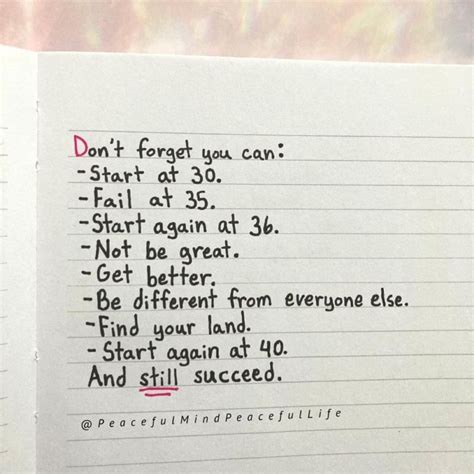 Don't forget you can:
-Start at 30.
-Fail at 35.
-Start again at 36.
-Not be great.
-Get better.
-Be different from everyone else.
-Find your land.
-Start again at 40.
And still succeed.
@PeacefulMindPeacefulLife